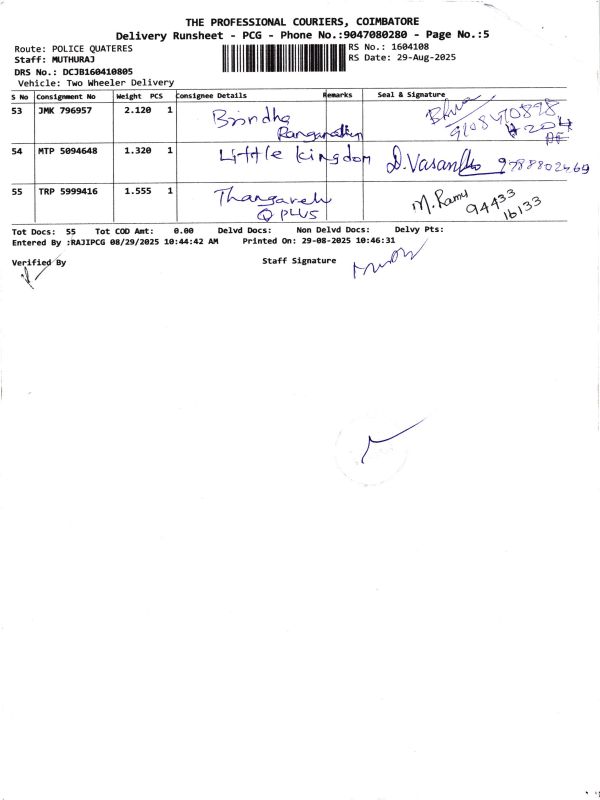 THE PROFESSIONAL COURIERS, COIMBATORE
Delivery Runsheet - PCG - Phone No.:9047080280 - Page No.:5
Route: POLICE QUATERES
RS No.: 1604108
Staff: MUTHURAJ
RS Date: 29-Aug-2025
DRS No.: DCJB160410805
Vehicle: Two Wheeler Delivery
S No Consignment No Weight PCS Consignee Details Remarks Seal & Signature
53 JMK 796957 2.120 1 Brindha
Ranganathan
54 MTP 5094648 1.320 1 Little kingdom D.Vasantha 9788802469
55 TRP 5999416 1.555 1 Thangavelu M.Ramu 94433
Q PLUS 16133
Tot Docs: 55 Tot COD Amt: 0.00 Delvd Docs: Non Delvd Docs: Delvy Pts:
Entered By :RAJIPCG 08/29/2025 10:44:42 AM Printed On: 29-08-2025 10:46:31
Verified By Staff Signature